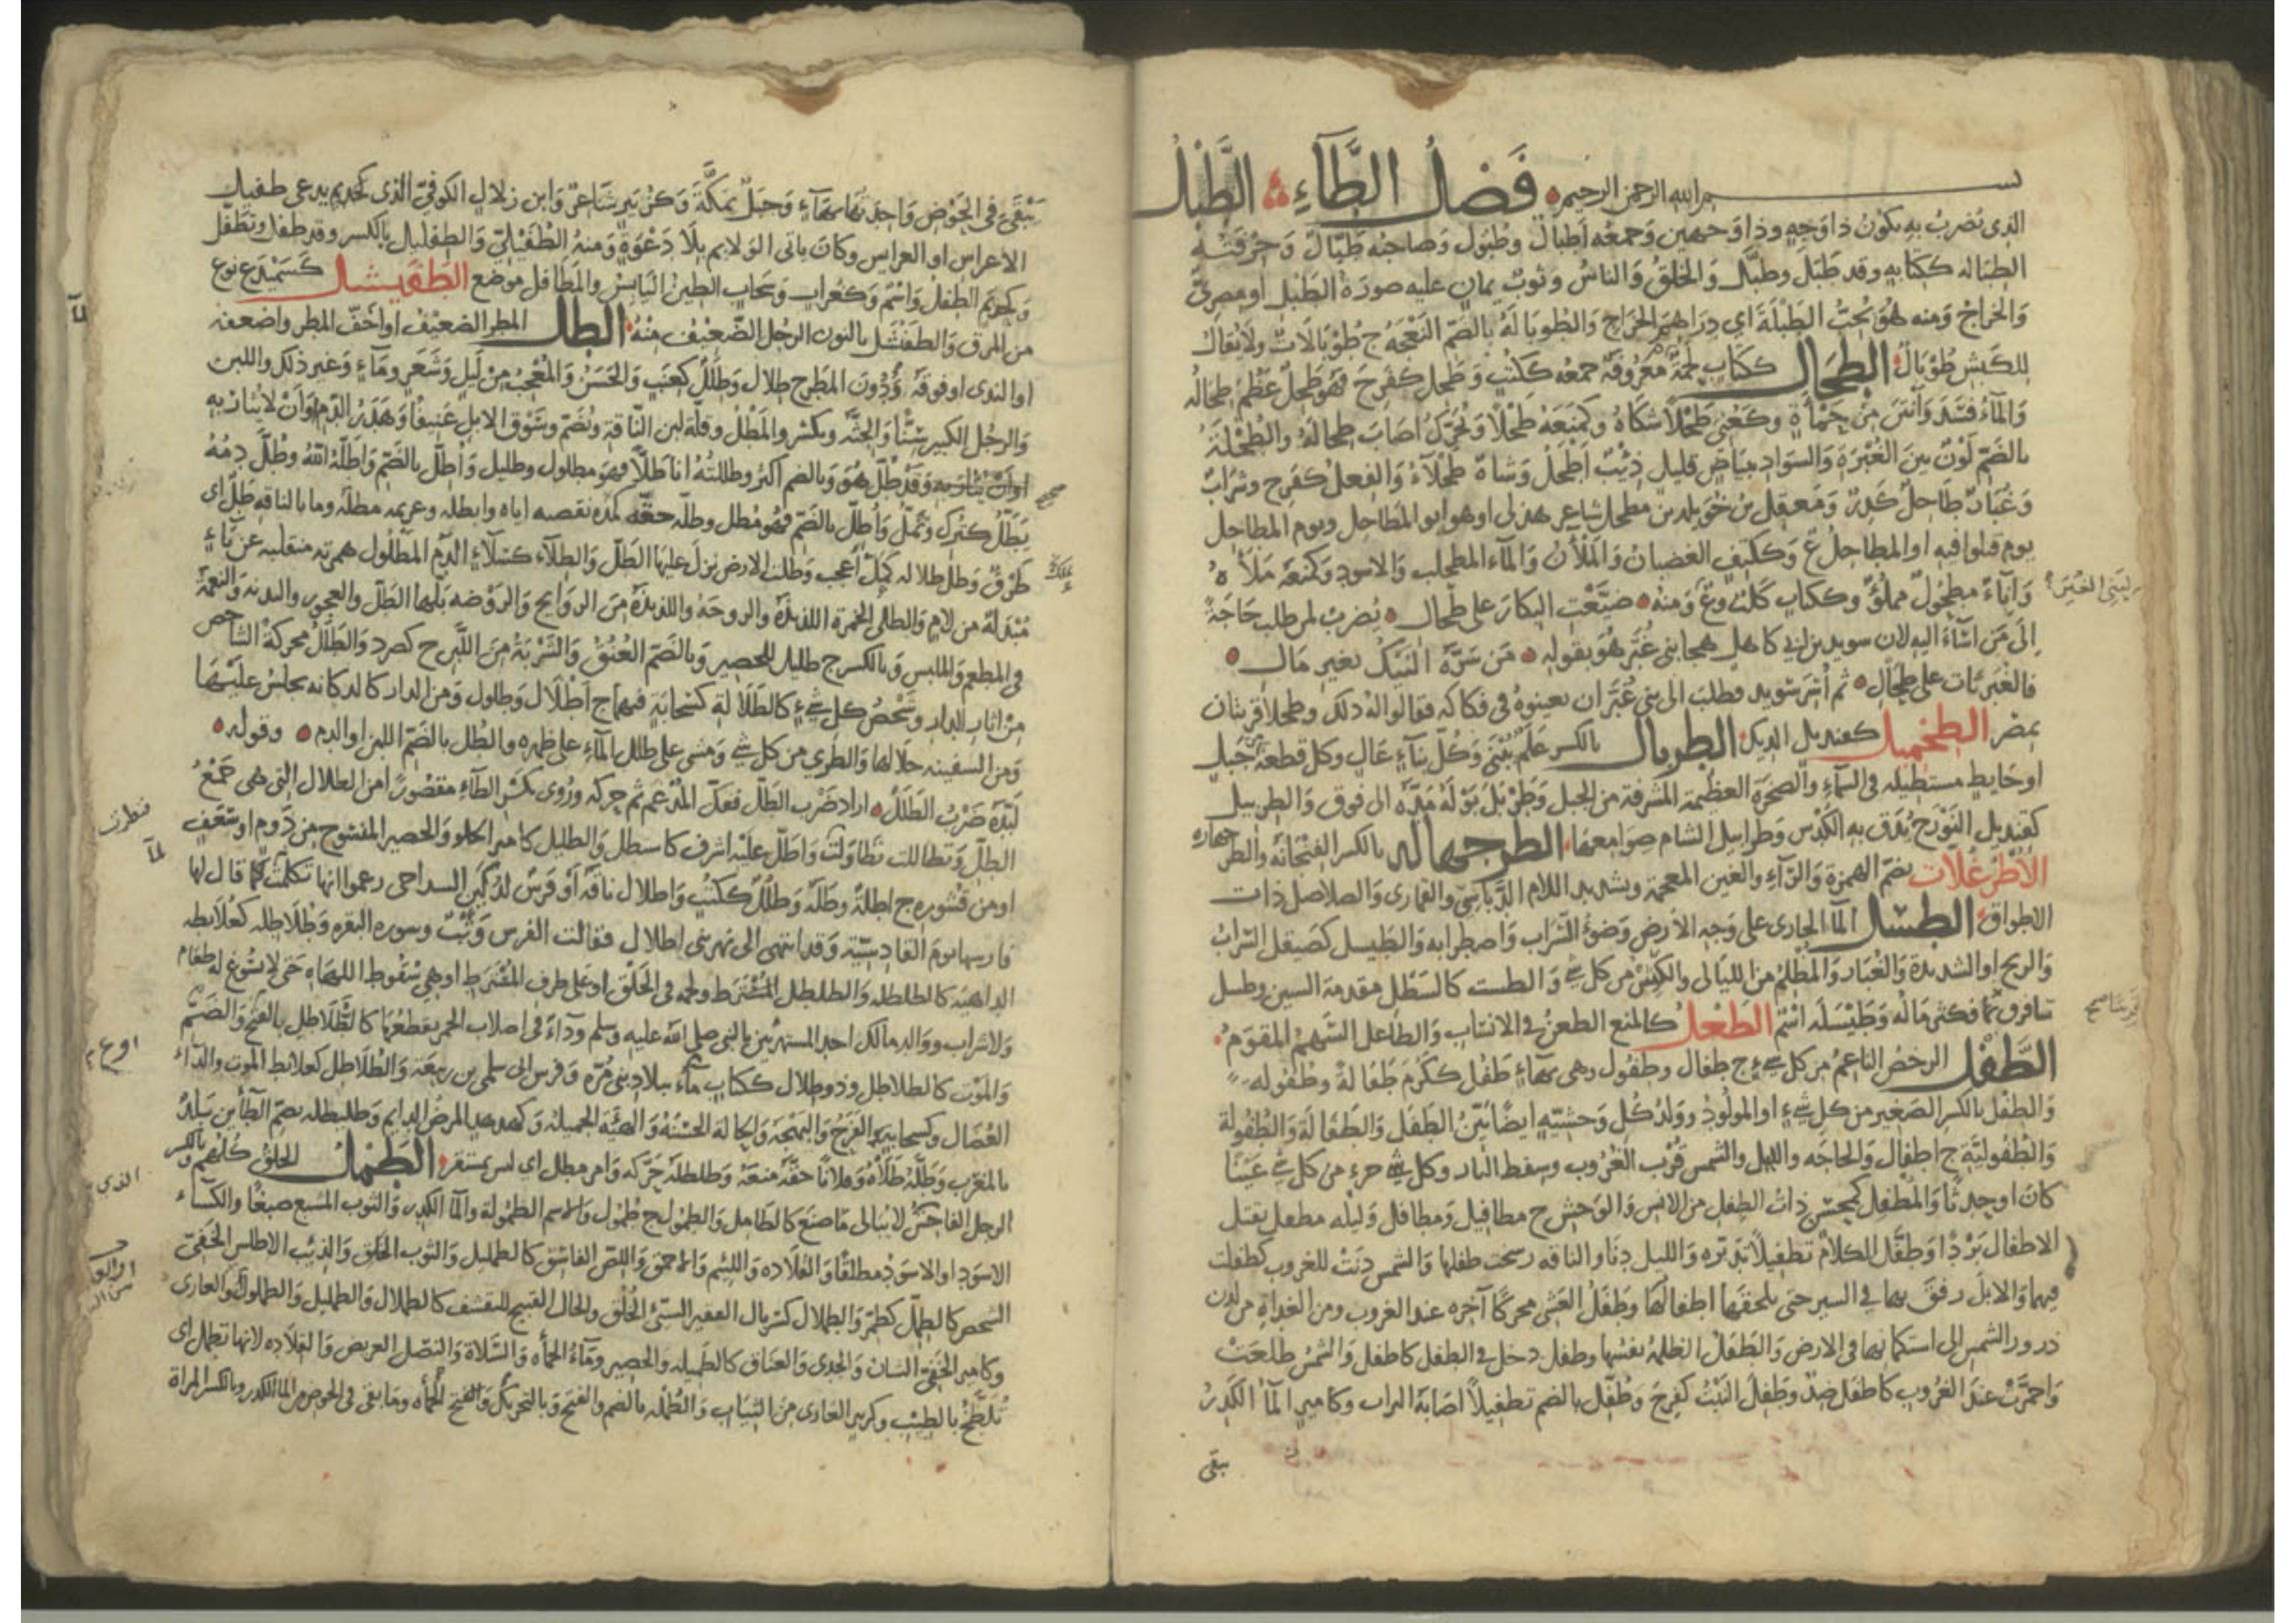 بسم الله الرحمن الرحيم فَصْلُ الطَّاءِ الطَّبْلُ
الذى يُضرَبُ به يكونُ ذا وَجْهٍ وذا وَجهين وَجمعُه أطبالٌ وطُبُول وَصاحبُه طَبّالٌ وَحِرْفَتُه
الطِبَاله ككتابه وقد طَبَلَ وطبَّل وَالخلقُ وَالناسُ وثوبٌ يمانٍ عليه صورَةُ الطَبْل أو مصرىّ
وَالخراجُ وَمنه هُوَ يُحبُّ الطَبْلَةَ اى دراهمَ الخراج وَالطُوبالَةُ بالضمّ النَعْجَه ج طُوْبَالَاتٌ وَلا يُقالُ
للكَبش طُوْبَالٌ الطِحَال ككتاب لحمَةٌ مَعرُوفَةٌ جمعُه ككُتُب وَطَحِل كفَرِحَ فهو طَحِلٌ عَظُمَ طِحالُه
وَالماءُ فسَدَ وَأنتنَ مِنْ حَمْأةٍ وكعُنى طَحْلاً شكاهُ وكمنَعَهُ طَحْلاً ويُحرّكُ اصَابَ طِحَالَهُ والطُحْلَةُ
بالضمّ لَوْنٌ بينَ الغُبْرَةِ وَالسوَادِ ببَيَاضٍ قليلٍ ذِئْبٌ أَطْحَلُ وَشاةٌ طَحْلَاءُ وَالفِعلُ كفَرِح وشرَابٌ
وَغُبَارٌ طاحلٌ كَدِرٌ وَمعقِل بن خوَيلد بن مطحل شاعر هذلى او هو ابو المطاحل ويوم المطاحل
يوم قتلوا فيه او المطاحلُ ع وَككتِفٍ الغضبانُ وَالمَلْآنُ وَالماء المطحلب وَالاسود وَكمنعَهُ مَلأه
وَاِنَاءٌ مطحُولٌ مملُوٌّ وككتاب كلبٌ وع وَمنه ضيَّعْتَ البكارَ على طِحال يُضرَبُ لمن طلب حَاجَةً
اِلَى مَن اسَاءَ اليه لان سويد بن ابى كاهل هجا بنى غُبَّرَ هُوَ بقوله مَن سَرَّهُ النَيْكُ بغيرِ مَال
فالغُبَريّات على طِحَالٍ ثم أُسِرَ سُويد فطلب الى بنى غُبَّرَ ان يعينوهُ فى فكاكه فقالوا له ذلك وطحل قرية
بمصْرَ الطِخْمِيل كقنديل الديك الطربال بالكسر عَلَمٌ يُبْنَى وَكُلّ بناءٍ عَالٍ وكل قطعة من جَبل
او حَائِطٍ مستطيلة فى السماء والصخرَة العظيمة المشرفة من الجبل وَطَرْبَلَ بَوْلَهُ مَدَّهُ الى فوق وَالطِربيل
كقنديل النَوْرَج يُدَق به الكُدْس وَطرابيل الشام صوامعها الطرجهاله بالكسر الفنجانة والطرجهارة
الاُطْرُغُلّات بضمّ الهمزة وَالراء والغين المعجمة وبتشديد اللام الدَّبَاسىّ والقمارى وَالصلاصل ذات
الاطواق الطسل الما الجارى على وَجه الارضِ وَضوْءُ السَّرَاب وَاضطرابه وَالطَيسل كصَيقل السَّرَابُ
وَالريح او الشديدة وَالغبَار وَالمظلِمُ من الليالى والكَثير من كل شى وَ الطست كالسَّطْل مقدمة السين وطسل
سافر ... فكثر مَالُه وَطَيْسَلَه اسْم الطَعْل كالمنع الطعن فى الانساب وَالطَاعل السَّهمُ المقوَّم
الطَّفْل الرخصُ الناعمُ من كل شى ج طِفَال وطفُول وهى بهاءٍ طَفُل ككَرُم طَفَالَةً وطُفُوله
وَالطفل بالكسر الصَغير من كل شىءٍ او المولُود وَوَلدُ كُل وَحشيّه ايضًا بَيّنُ الطفَل وَالطَفَالَة وَالطُفُولة
وَالطُفُوليّة ج اطفَال وَالحاجَه والليل والشمس قُرْبَ الغُرُوب وسِقط النار وكل شى جزءٍ من كل شى عَيْنًا
كانَ او حدثًا وَالمُطفِل كمحسِن ذاتُ الطفل من الانس وَالوَحْش ج مطافيل وَمطافل وَليله مطفل يقتل
الاطفال بَرْدًا وَطفَّلَ الكلامَ تطفيلاً تدبّرَه وَالليل دنَا والناقه رسحت طفلها وَالشمس دَنَتْ للغروب كطفلت
فيهما وَالابلَ رفقَ بها فى السير حتى تلحقَها اطفالُهَا وَطَفَلُ العَشى محركًا آخره عند الغروب ومن الغداةِ من لدن
ذرور الشمس الى استكمانها فى الارض وَالطفَل الظلمة نفسُها وطفل دخل فى الطفل كاطفل وَالشمسُ طلعَتْ
وَاحمَرّتْ عندَ الغرُوب كاطفل ضِدٌّ وطَفِلَ النَبْتُ كفرِحَ وَطُفّل بالضم تطفيلاً اصَابَهُ التراب وكامير الما الكَدِرُ
يبقى
يَبْقَى فى الحَوْضِ وَاحدتها بهاءٍ وَجبَلٌ بمكّةَ وَكزُبَيرٍ شاعرٌ وَابن زلال الكوفىّ الذى كحديم يدعى طفيل
الاعراس او العرايس وكانَ ياتى الولايم بلا دَعْوَةٍ وَمنهُ الطُفَيْليّ وَالطفليل بالكسر وقد طفل وتَطَفّل
وَكحِذْيَم الطفلُ وَاسْم وَكغُراب وَسَحَاب الطين اليَابسُ والمَطافل موضع الطَفَيْشل كسَمَيْدَع نوع
من المرق وَالطفنشَل بالنون الرجُل الضّعيْف منْهُ الطل المطر الضعيفُ او اخَفّ المطر واضعفه
او الندى او فوقَهُ وَدُونَ المطر ج طلال وَطِلَلٌ كعِنَب وَالحَسَنُ وَالمُعجِب مِنْ لَيلٍ وَشَعَرٍ وَمَاءٍ وَغير ذلك واللبن
وَالرجُل الكبير سِنًّا وَالحيَّه وبكسر والمَطْلُ وقلة لبن النّاقة ويُضَمّ وسَوْق الابل عَنيفًا وَهدَرُ الدّم او أنْ لا يُثأرَ به
وَقَدْ طُلّ هُوَ وَبالضم اكثر وطللتُهُ انا طلاًّ فهو مطلول وطليل وَأُطِلّ بالضَمّ وَاطلّهُ اللهُ وطُلَّ دمُهُ
يَطَلّ كيَزلّ ويَمَلّ وَأُطِلّ بالضمّ فهُو مُطَل وطلّه حقّه كمدّه نقصه اياه وابطله وعزيمه مطله وما بالناقه طُلّ اى
طَرْقٌ وَطَلّ طلاله كمَلّ أعجب وَطُلت الارض نزلَ عليها الطَلّ وَالطُلاء كسُلّاءٍ الدم المطلُول همزته منقلبه عن يَاءٍ
مُبْدلة من لامٍ وَالطلى الخمرة اللذيذة والروحَة واللذيذَةُ منَ الروَايح وَالرَوْضه بَلّها الطَلّ والعجوز والبدنه وَالنعمَة
فى المطعم وَالملبس وَبالكسر ج طليل للحصير وَبالضَمّ العُنُقُ وَالشَرْبَةُ منَ اللَبن ج كصُرَد وَالطَلَلُ محركةً الشاخص
من اثار الدار وشَخْصُ كل شىءٍ كالطَلالةِ كسَحَابةٍ فيهما ج اطْلَال وَطلول وَمن الدار كالدكانه يجلس عليها
وَمن السفينه جلالها وَالطَرِى من كل شى وَمشى على طلل الماء على ظهره والطُل بالضَمّ اللبن او الدم وقوله
لَبّدَهُ ضَرْبُ الطَلَلْ اراد ضَرْب الطَلّ ففكّ المُدْغَم ثم حركه ورُوى بكسْر الطاء مقصُورًا من الطلال التى هى جَمْعُ
الطلّ وَتطاللت تطاوَلتُ وَاطَلّ عليه اشرف كاستطل وَالطليل كامير الخلق وَالحصير المنسُوج مِن دَومٍ او سَعَف
او من قشوره ج اطلة وَطِلّة وَطُلُل ككُتُب وَاطلال ناقة أو فرَسٌ لبُكَيرٍ الشداخى زعموا انها تكلمت لمّا قال لها
فارسها يومَ القادسيّة وقد انتهى الى نهر ثبى اطلال فقالت الفرس وَثْبٌ وسورة البقره وَطُلَاطِله كعُلَابطه
الداهيَه كالطلطله وَالطلطل المُشْترط ولحمه فى الحَلْق او على طرف المُشْترط او هى سُقوط اللهاة حتى لا يسُوغ له طعَام
ولا شراب ووالد مالك احد المستهزئين بالنبى صلى الله عليه وسلم وَدآءٌ فى اصلاب الحمر يقطعُها كالطُلَاطل بالفتح وَالضَمّ
وَالمَوْت كالطلاطل وذو طِلال ككتاب مآء ببلاد بنى مُرّة وَفرس ابى سلمى بن ربيعة والطُلاطل كعلابط الموت والداء
العُضَال وكسحابٍ الفَرَحُ وَالبَهْجَة وَالحالَة الحسَنَة وَالهيئَة الجميلة وَكهدهد المرض الدائم وَطليطلة بضمّ الطآئين بَلدٌ
بالمغرب وَطلّه طَلاَّه وَفلانًا حقّهُ مَنعَهُ وَطلطلَهُ حَرّكه وَامر مطل اى ليس بمستقر الطَمْلُ الخلق كلهم وبالكسر
الرجل الفاحِشُ لا يُبالى مَا صنَعَ كالطَامل وَالطمُول ج طُمُول وَالاسم الطُمُولة والما الكدِر وَالثوب المشبع صبغًا والكساء
الاسوَد او الاسوَدُ مطلقًا وَالقلاده وَاللئيم وَالاحمق وَاللصّ الفاسق كالطمليل وَالثوب الخلَق وَالذئب الاطلس الخَفِىّ
الشخص كالطِملّ كطِمرّ وَالطِملال كسربال الفقير السيئ الخُلق والحال القبيح المتقشف كالطملال والطمليل وَالطملول وَالعارى
وكامير الخفى الشان وَالجدى وَالعنَاق كالطَميله وَالحصير وَمَاءُ الحمأه وَالسَلاة وَالنصل العريض وَالقلاده لانها تطمل اى
تُلطَّخُ بالطيب وكزبير العارى من الثيَاب وَالطُمله بالضم والفتح وَبالتحريك وَالفتح الحمأه وما بقى فى الحوض من الما الكدر وبالكسر المراة